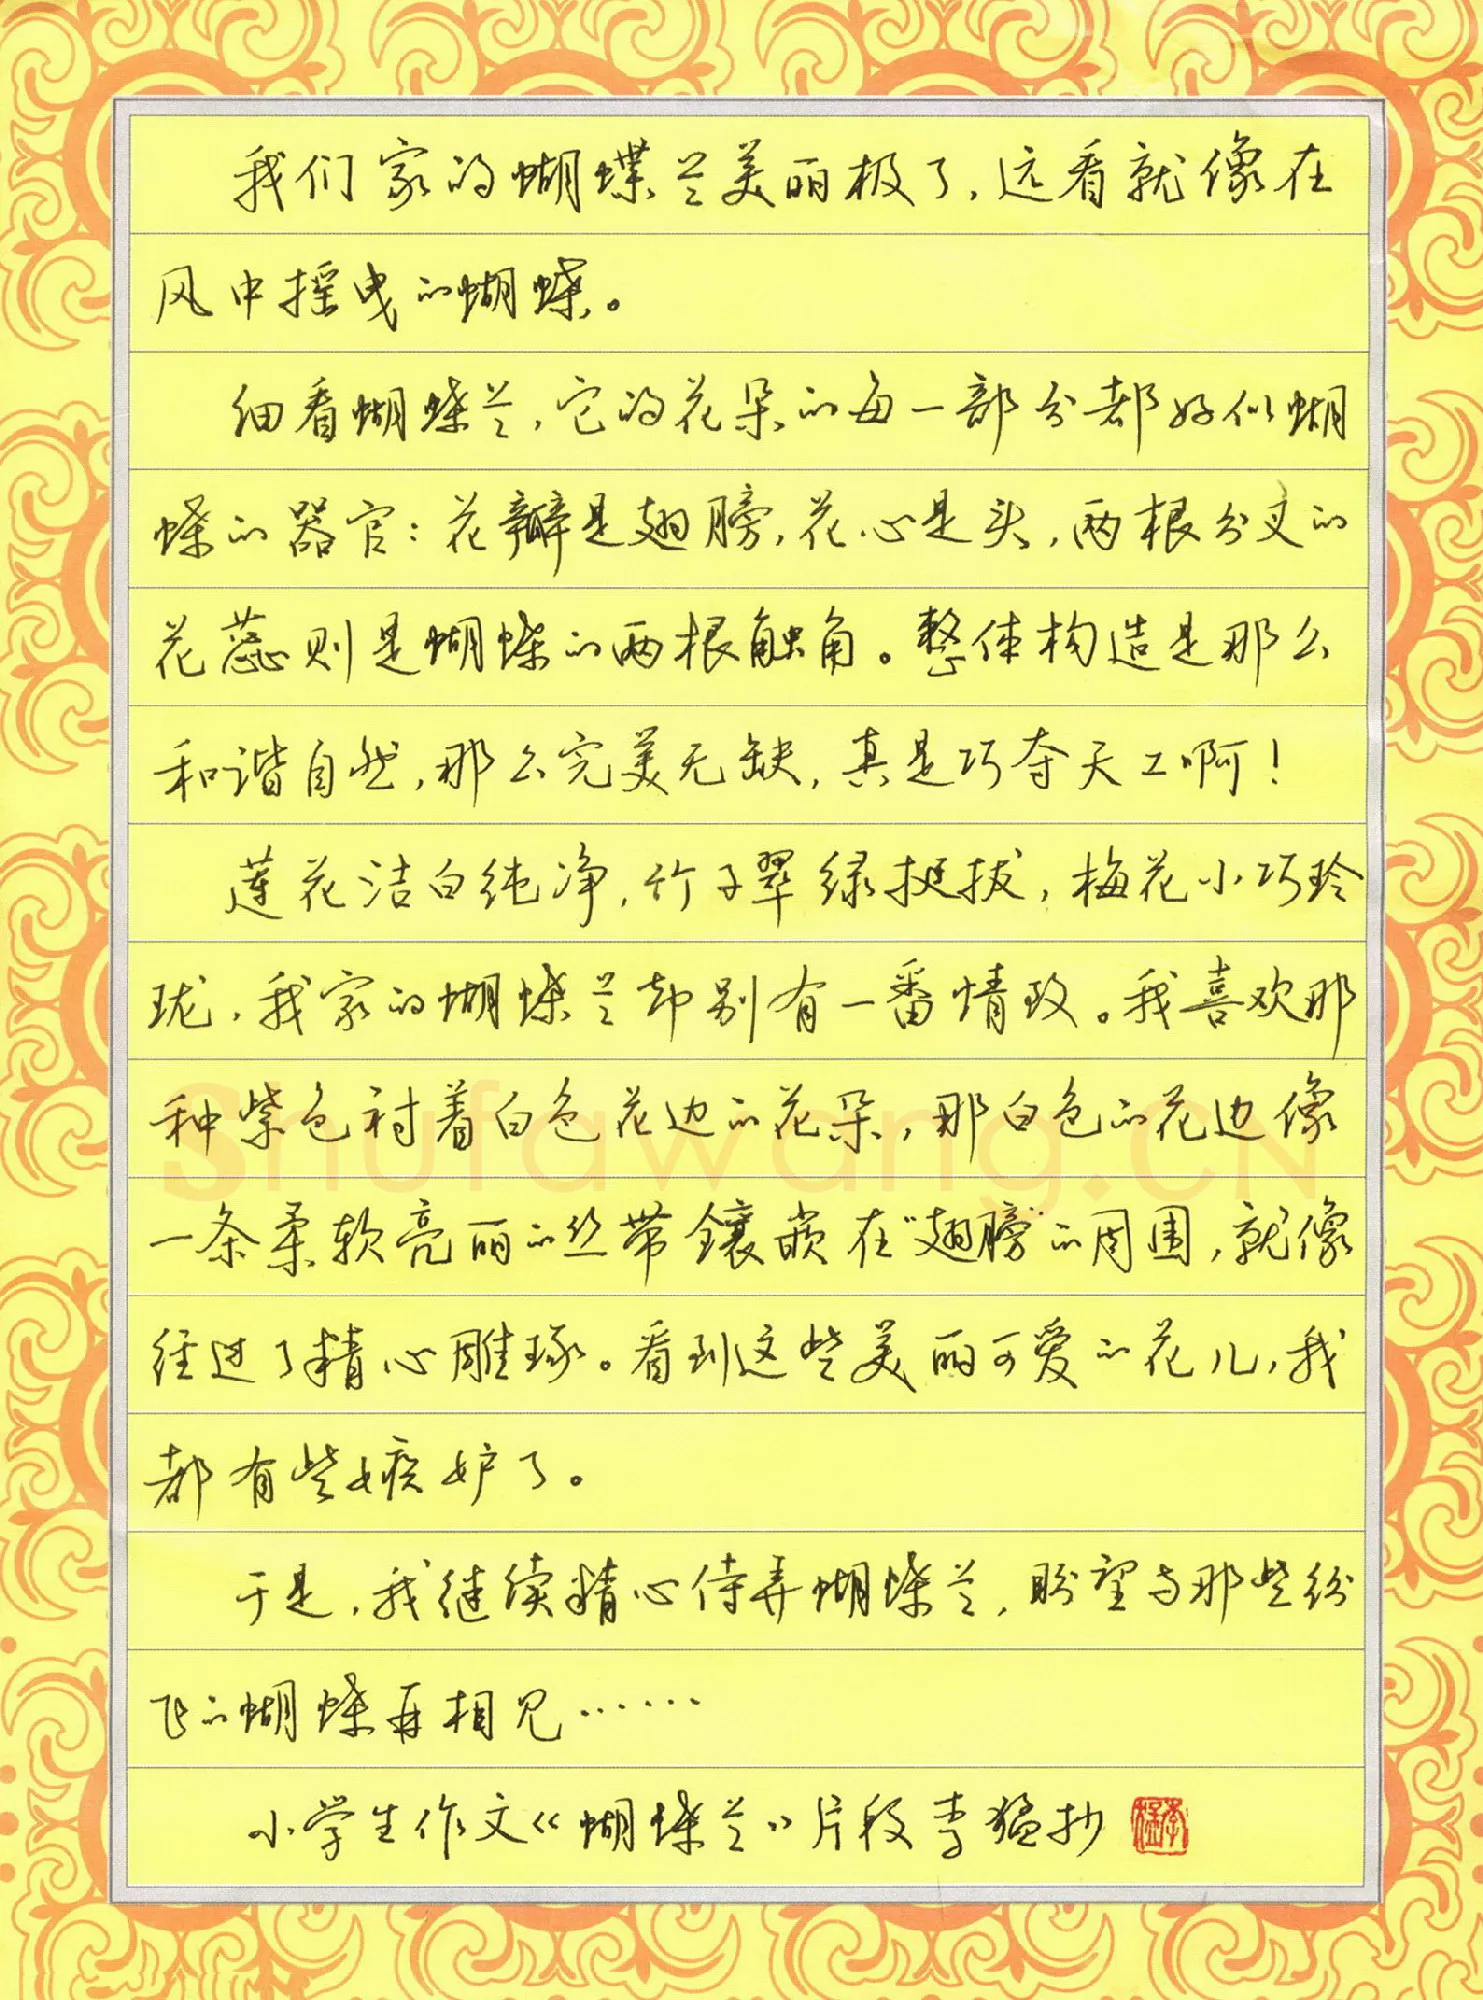 我们家的蝴蝶兰美丽极了，远看就像在
风中摇曳的蝴蝶。
细看蝴蝶兰，它的花朵的每一部分都好似蝴
蝶的器官：花瓣是翅膀，花心是头，两根分叉的
花蕊则是蝴蝶的两根触角。整体构造是那么
和谐自然，那么完美无缺，真是巧夺天工啊！
莲花洁白纯净，竹子翠绿挺拔，梅花小巧玲
珑，我家的蝴蝶兰却别有一番情致。我喜欢那
种紫色衬着白色花边的花朵，那白色的花边像
一条柔软亮丽的丝带镶嵌在“翅膀”的周围，就像
经过了精心雕琢。看到这些美丽可爱的花儿，我
都有些嫉妒了。
于是，我继续精心侍弄蝴蝶兰，盼望与那些纷
飞的蝴蝶再相见……
小学生作文《蝴蝶兰》片段 李猛抄
李猛
Shufawang.CN